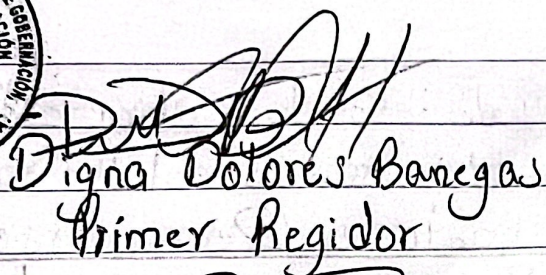 GOBERNACIÓN,
Digna Dolores Banegas
Primer Regidor